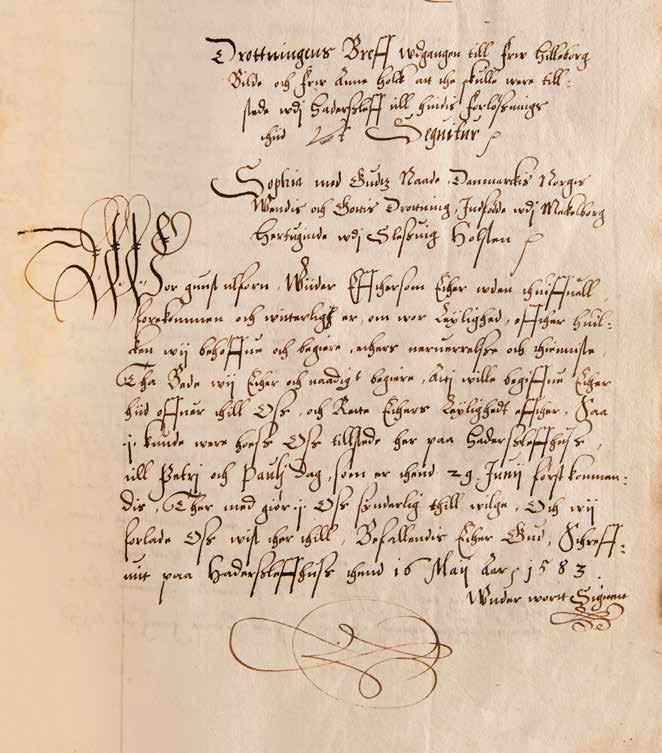 Drottningens Breff wdgangen till frw Hilleborg
Bilde och frw Anne Holk att the skulle were till:
stede wdj Haderssleff till hindis forlössnings
thid etc Sequitur
Sophia med Gudtz Naade, Danmarckis Norgis
Wendis och Gottis Drottning, Indföde wdj Meckelborg
Hertuginde wdj Slessuig Holsten
Wor gunst tilforn, Wiider Effthersom Ether wden thuiffuell
forekommen och witterligt er, om wor Leylighed, effther huil:
cken wij behoffue och begiere, ethers neruerrelsse och thienniste,
Tha Bede wij Ether och naadigt begiere, Attj wille begiffue Ether
hiid offuer thill Oss, och Rette Ethers Leylighedt effther, Saa
ij kunde were hoess Oss tillstede her paa Hadersleffhuss,
till Petrj och Paulj dag, som er thend 29 Junij först kommen:
dis, Ther med giör ij Oss synderlig thill wilge, Och wij
forlade Oss wist ther thill, Befallendis Ether Gud, Schreff:
uit paa Haderssleffhuss thend 16 Maij Aar 1583
Wnder wortt Signett